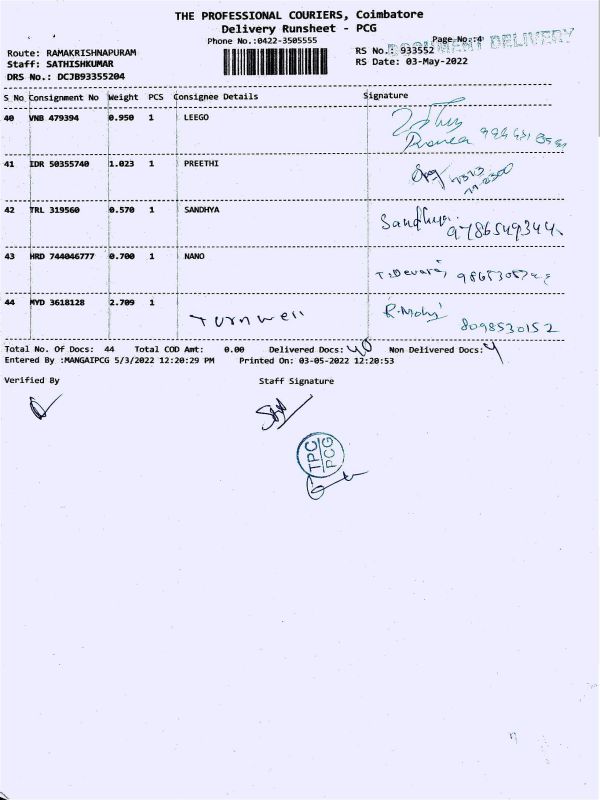 THE PROFESSIONAL COURIERS, Coimbatore
Delivery Runsheet - PCG
Phone No.:0422-3505555
Page No.:4
DOCUMENT DELIVERY
Route: RAMAKRISHNAPURAM
RS No.: 933552
Staff: SATHISHKUMAR
RS Date: 03-May-2022
DRS No.: DCJB93355204
S No Consignment No Weight PCS Consignee Details Signature
40 VNB 479394 0.950 1 LEEGO
41 IDR 50355740 1.023 1 PREETHI
42 TRL 319560 0.570 1 SANDHYA Sandhya
43 HRD 744046777 0.700 1 NANO T. Devaraj
44 MYD 3618128 2.709 1 Turnwell R. Mohj
8098530152
Total No. Of Docs: 44 Total COD Amt: 0.00 Delivered Docs: 40 Non Delivered Docs: 4
Entered By :MANGAIPCG 5/3/2022 12:20:29 PM Printed On: 03-05-2022 12:20:53
Verified By Staff Signature
TPC
PCG